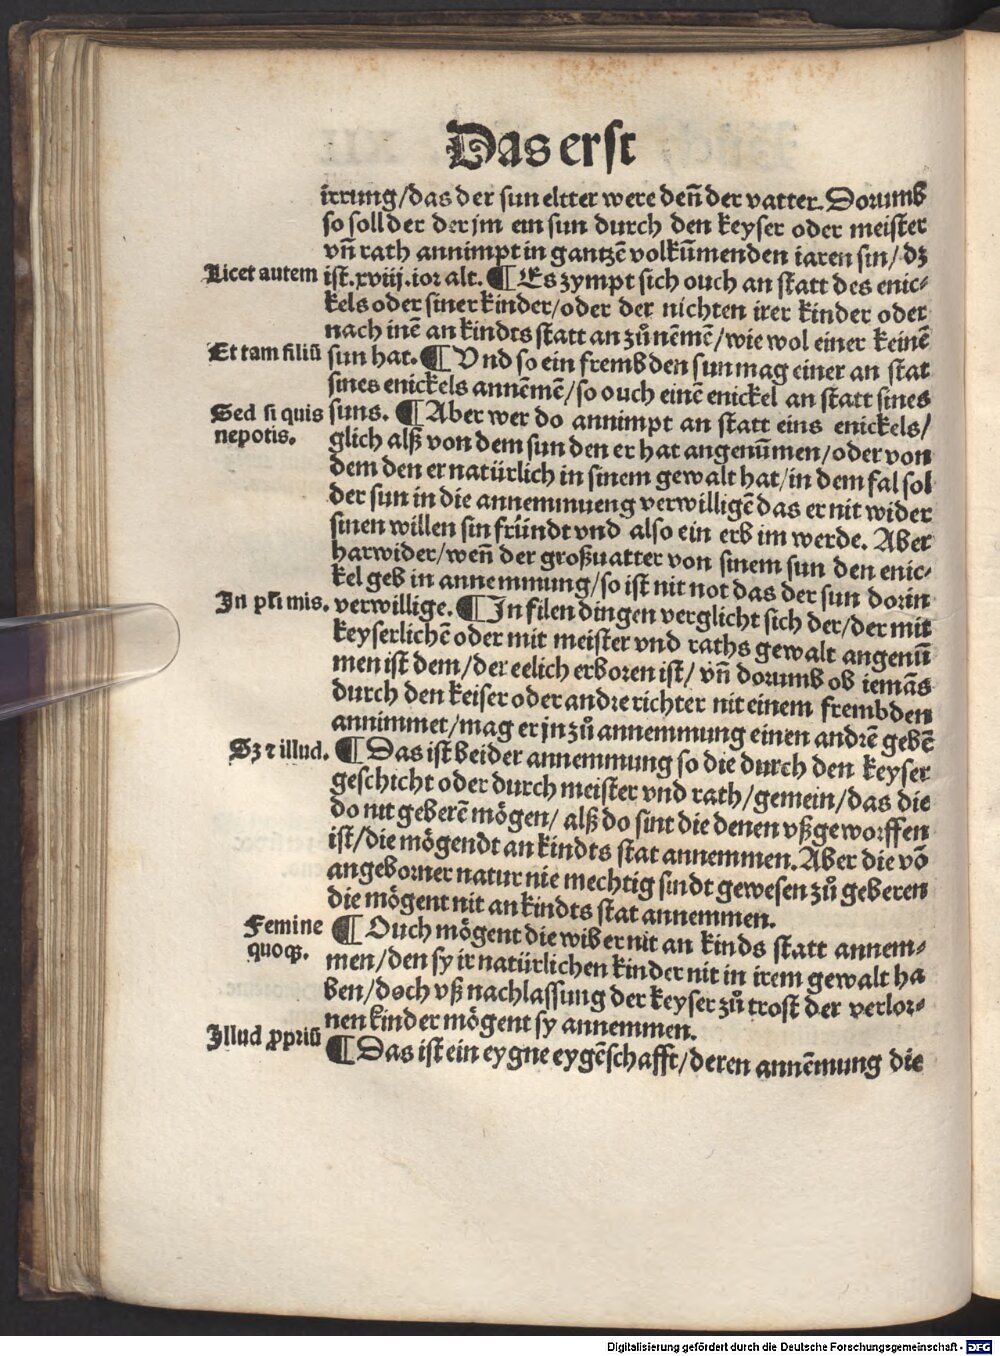 Das erst
irrung/das der sun eltter were deñ der vatter. Dorumb
so soll der der jm ein sun durch den keyser oder meister
vñ rath annimpt in gantzē volkūmenden iaren sin/dz
Licet autem ist.xviij.ior alt. ¶ Es zympt sich ouch an statt des enic⸗
kels oder siner kinder/oder der nichten irer kinder oder
nach inē an kindts statt an zů nēmē/wie wol einer keinē
Et tam filiū sun hat. ¶ Vnd so ein frembden sun mag einer an stat
sines enickels annēmē/so ouch einē enickel an statt sines
Sed si quis suns. ¶ Aber wer do annimpt an statt eins enickels/
nepotis. glich alß von dem sun den er hat angenūmen/oder von
dem den er natürlich in sinem gewalt hat/in dem fal sol
der sun in die annemmueng verwilligē das er nit wider
sinen willen sin fründt vnd also ein erb im werde. Aber
harwider/weñ der großuatter von sinem sun den enic⸗
kel geb in annemmung/so ist nit not das der sun dorin
In pl̄i mis. verwillige. ¶ In filen dingen verglicht sich der/der mit
keyserlichē oder mit meister vnd raths gewalt angenū
men ist dem/der eelich erboren ist/ vñ dorumb ob iemās
durch den keiser oder andre richter nit einem frembden
annimmet/mag er jn zů annemmung einen andrē gebē
Sz ⁊ illud. ¶ Das ist beider annemmung so die durch den keyser
geschicht oder durch meister vnd rath/gemein/das die
do nit geberē mögen/ alß do sint die denen vßgeworffen
ist/die mögendt an kindts stat annemmen. Aber die vō
angeborner natur nie mechtig sindt gewesen zů geberen
die mögent nit an kindts stat annemmen.
Femine ¶ Ouch mögent die wiber nit an kinds statt annem⸗
quoqꝫ. men/den sy ir natürlichen kinder nit in irem gewalt ha
ben/doch vß nachlassung der keyser zů trost der verlor⸗
nen kinder mögent sy annemmen.
Illud ꝓpriū ¶ Das ist ein eygne eygēschafft/deren annēmung die
Digitalisierung gefördert durch die Deutsche Forschungsgemeinschaft - DFG